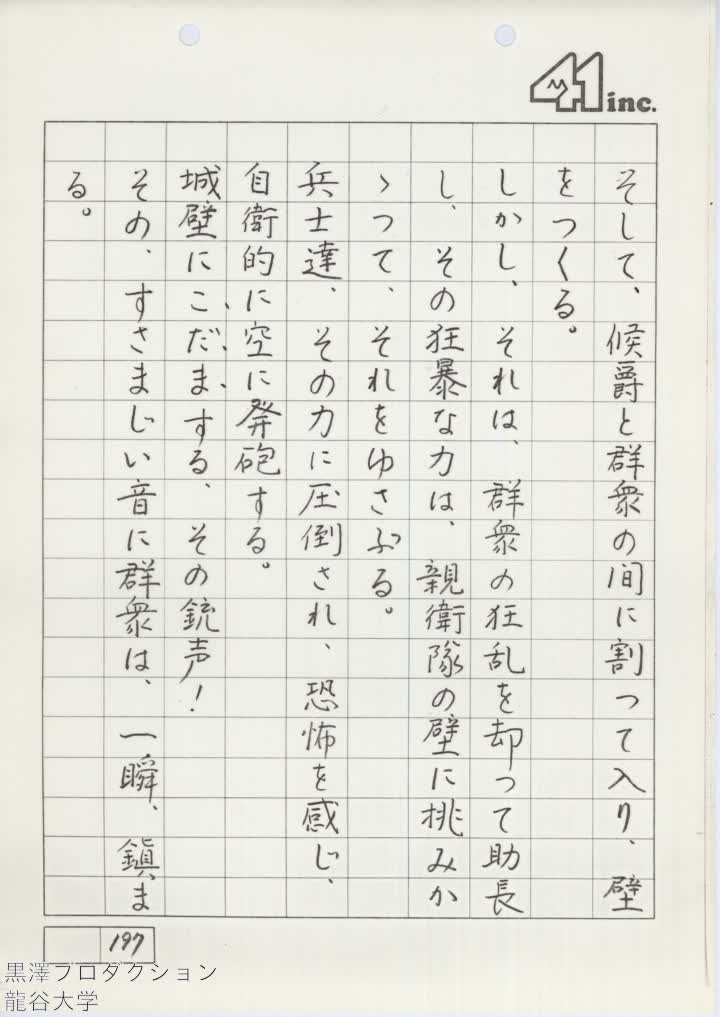 41 inc.
そして、候爵と群衆の間に割って入り、壁
をつくる。
しかし、それは、群衆の狂乱を却って助長
し、その狂暴な力は、親衛隊の壁に挑みか
ゝって、それをゆさぶる。
兵士達、その力に圧倒され、恐怖を感じ、
自衛的に空に発砲する。
城壁にこだまする、その銃声！
その、すさまじい音に群衆は、一瞬、鎮ま
る。
197
黒澤プロダクション
龍谷大学